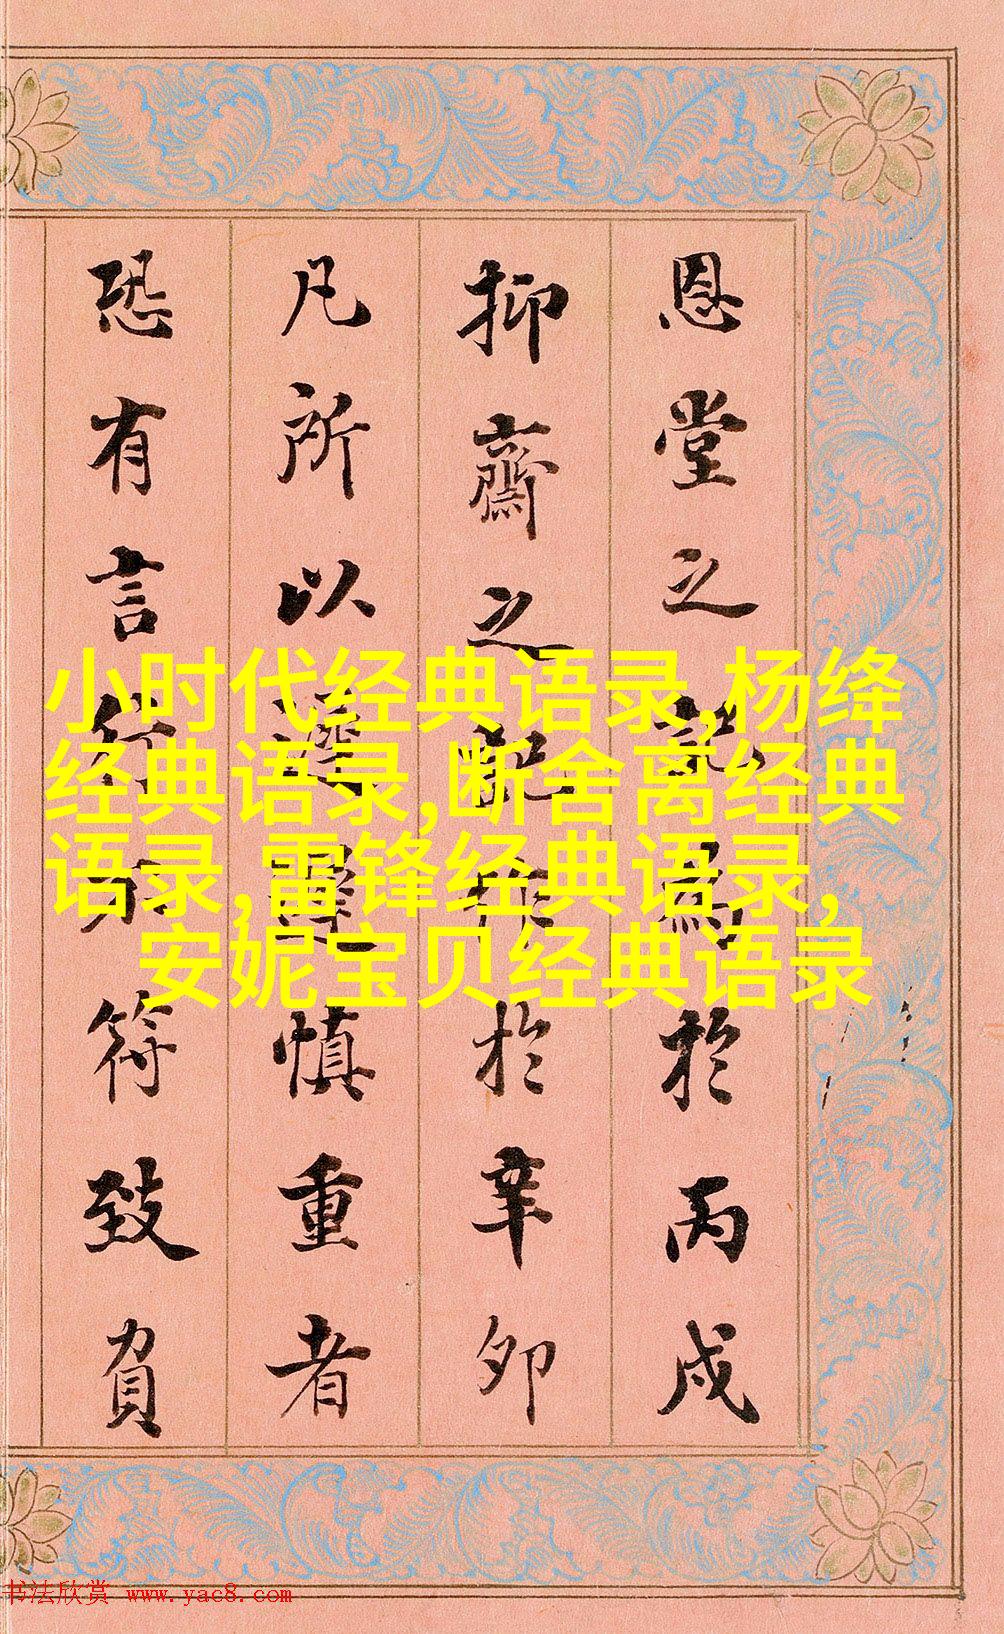 恩堂之記爲於丙戌
抑齋之記作於辛卯
凡所以遲遲慎重者
恐有言行不符致負
小时代经典语录,杨绛
经典语录,断舍离经典
语录,雷锋经典语录,
安妮宝贝经典语录
书法欣赏 www.yac8.com